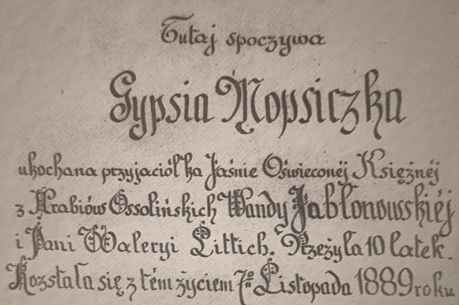 Tutaj spoczywa
Gypsia Mopsiczka
ukochana przyjaciółka Jaśnie Oświeconéj Księżnéj
z Hrabiów Ossolińskich Wandy Jabłonowskiéj
i Pani Waleryi Littich. Przeżyła 10 latek.
Rozstała się z tém życiem 7go Listopada 1889 roku